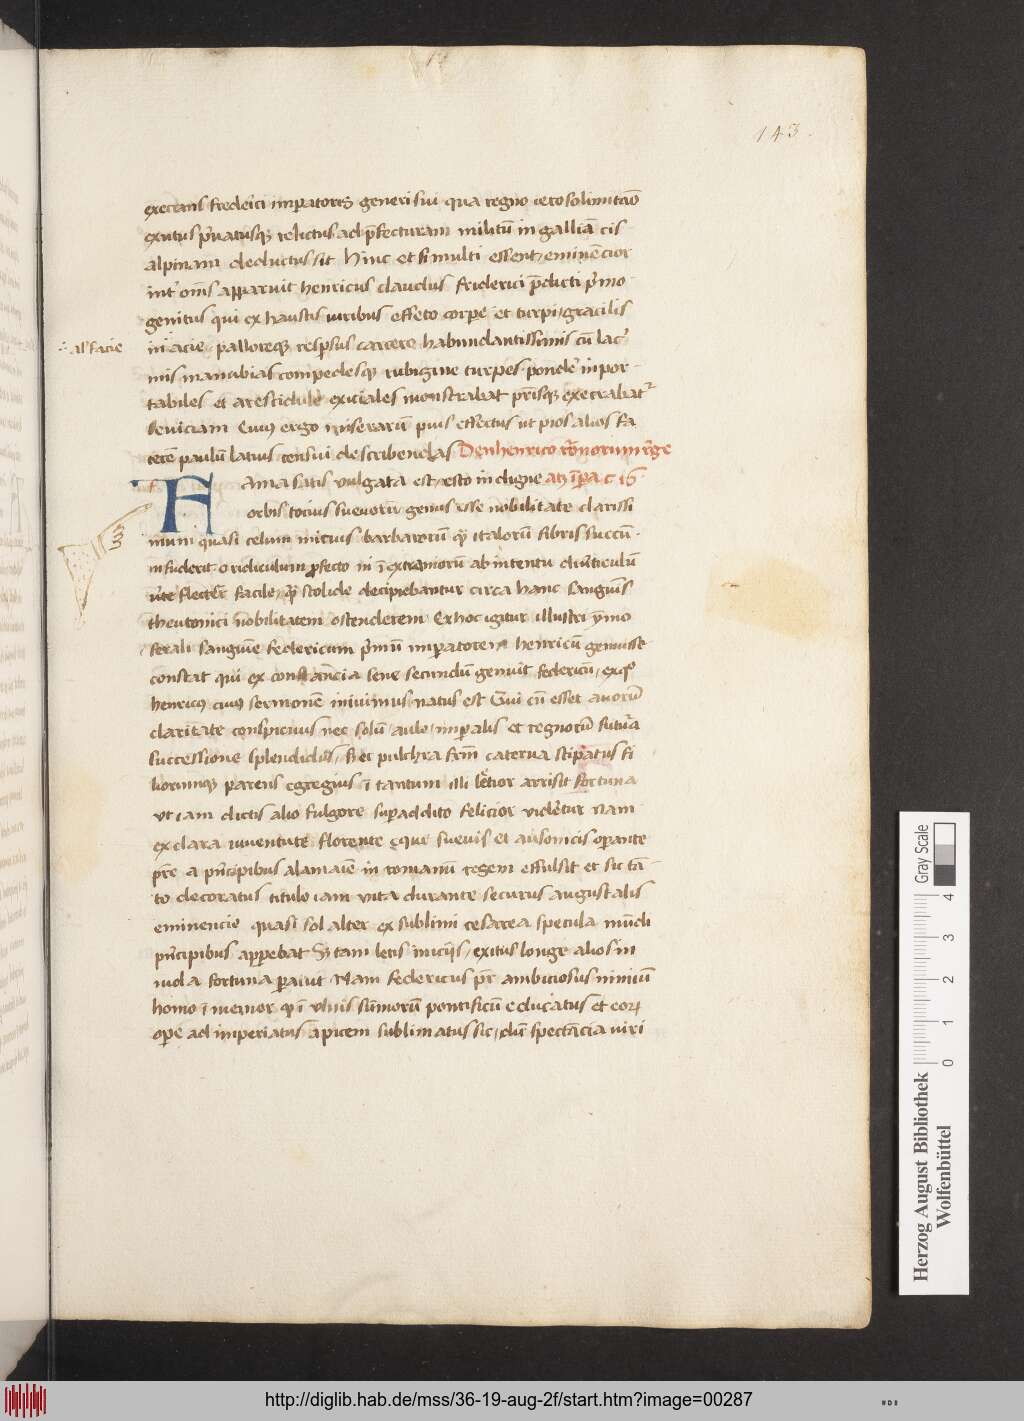 143.
execrans frederici impatoris generi sui qua regno ierosolimitão
exutus p̃uatusqȝ relictus ad p̃fecturam militũ in galliã cis
alpinam deductus sit hinc et si multi essent, eminẽcior
int̾ om̃s apparuit henricus claudus friderici p̃dicti p̾mo
genitus qui exhaustis uiribus effeto corpe et turpi, gracilis
in acie pallore qȝ respsus carcere habundantissimis cũ lac̾
al' facie
mis manubias compedesqȝ rubigine turpes ponde̾ inpor
tabiles et exiciales monstrabat p̃risqȝ execrabat᷑
seuiciam Cuius ergo miserarũ pius effectus ut pios alios fa
cerẽ paulũ latius censui describendas De henrico
FAma satis vulgata est, esto indigne
orbis tocius sueuorũ genus esse nobilitate clarissi
mum quasi celum mitius barbarorũ qȝ italorũ fibris succũ
infuderit o ridiculum profecto in extraniorũ ab intentu diũticulũ
facile stolide decipiebantur circa hanc sanguĩs
theutonici nobilitatem ostenderem Ex hoc igitur illustri
sanguĩe federicum p̾mũ impatorem henricũ genuisse
constat qui ex constãncia sene secundũ genuit federicũ, ex q°
henricus cuius sermonẽ iniuimus natus est Qui cũ esset auorũ
claritate conspicuus nec solũ aule impalis et regnorũ futura
successione splendidus, sꝫ et pulchra frm̃ caterua stipatus fi
liorumqȝ parens egregius ĩ tantum illi letior arrisit fortuna
vt iam dictis alio fulgore supaddito felicior videretur Nam
ex clara iuuentute florente eque sueuis et ausonicis opante
pr̃e a p̾ncipibus alamaie in romanũ regem effulsit et sic tã
to decoratus titulo iam vita durante securus augustalis
eminencie quasi sol alter ex sublimi cesarea specula mũdi
p̾ncipibus apparebat Sꝫ tam letis iniciis, exitus longe alios in
uida fortuna parauit Nam federicus pr̃ ambiciosus nimiũ
homo ĩmemor qȝ ĩ vlnis sũmorũ pontificũ educatus et eoꝝ
ope ad imperiatus apicem sublimatus sic, dum spectãcia uiri
Gray Scale
0 1 2 3 4
Herzog August Bibliothek
Wolfenbüttel
http://diglib.hab.de/mss/36-19-aug-2f/start.htm?image=00287